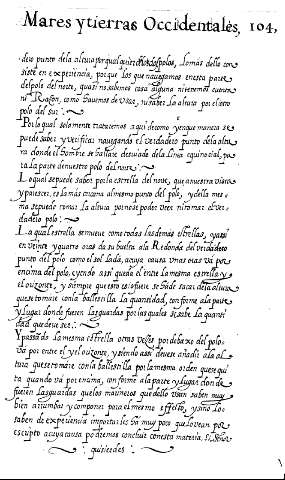 Mares y tierras Occidentales, 104,
dero punto dela altura por qualquier delos polos, Lo mas dello con
siste en experiencia, porque los que navegamos en esta parte
del polo del norte, quasi no sabemos cosa alguna ni tenemos cuenta
ni Razon, como havemos de usar, ni saber La altura por el otro
polo del sur:
Por lo qual solamente trataremos aqui de como y en que manera se
puede saber y verificar navegando el verdadero punto dela altu
ra donde el hombre se hallare desviado dela Linea equinocial, pa
ra La parte de nuestro polo del norte:
Lo qual se puede saber por la estrella del norte, que a nuestra vista
y parescer, es La mas cercana al mismo punto del polo, y della mes
ma se puede tomar La altura por no se poder ver ni tomar el ver
dadero polo:
La qual estrella se mueve como todas Las demas estrellas, y assi
en veinte y quatro oras da su buelta ala Redonda del verdadero
punto del polo como el sol La da, a cuya causa unas vezes va por
encima del polo, cyendo assi queda el entre La mesma estrella y
el orizonte, y siempre que esto es o fuere se ha de sacar dela altura
que se tomare con la ballestilla La quantidad, conforme ala parte
y Lugar donde fueren Las guardas por las quales se sabe La quanti
dad que deve ser:
Y passado La mesma estrella otras vezes por debaxo del polo
va por entre el y el orizonte, y siendo assi deve se añadir ala al
tura que se tomare con la ballestilla por la mesma orden que se qui
ta quando va por encima, conforme ala parte y Lugar don de
fueren Las guardas que los marineros que dello usan saben muy
bien arrumbar y componer para el mesmo effecto, y si no Lo
saben de experiencia importarles ha muy poco que lo vean por
escripto a cuya causa podremos concluir con esta materia, si
quisierdes